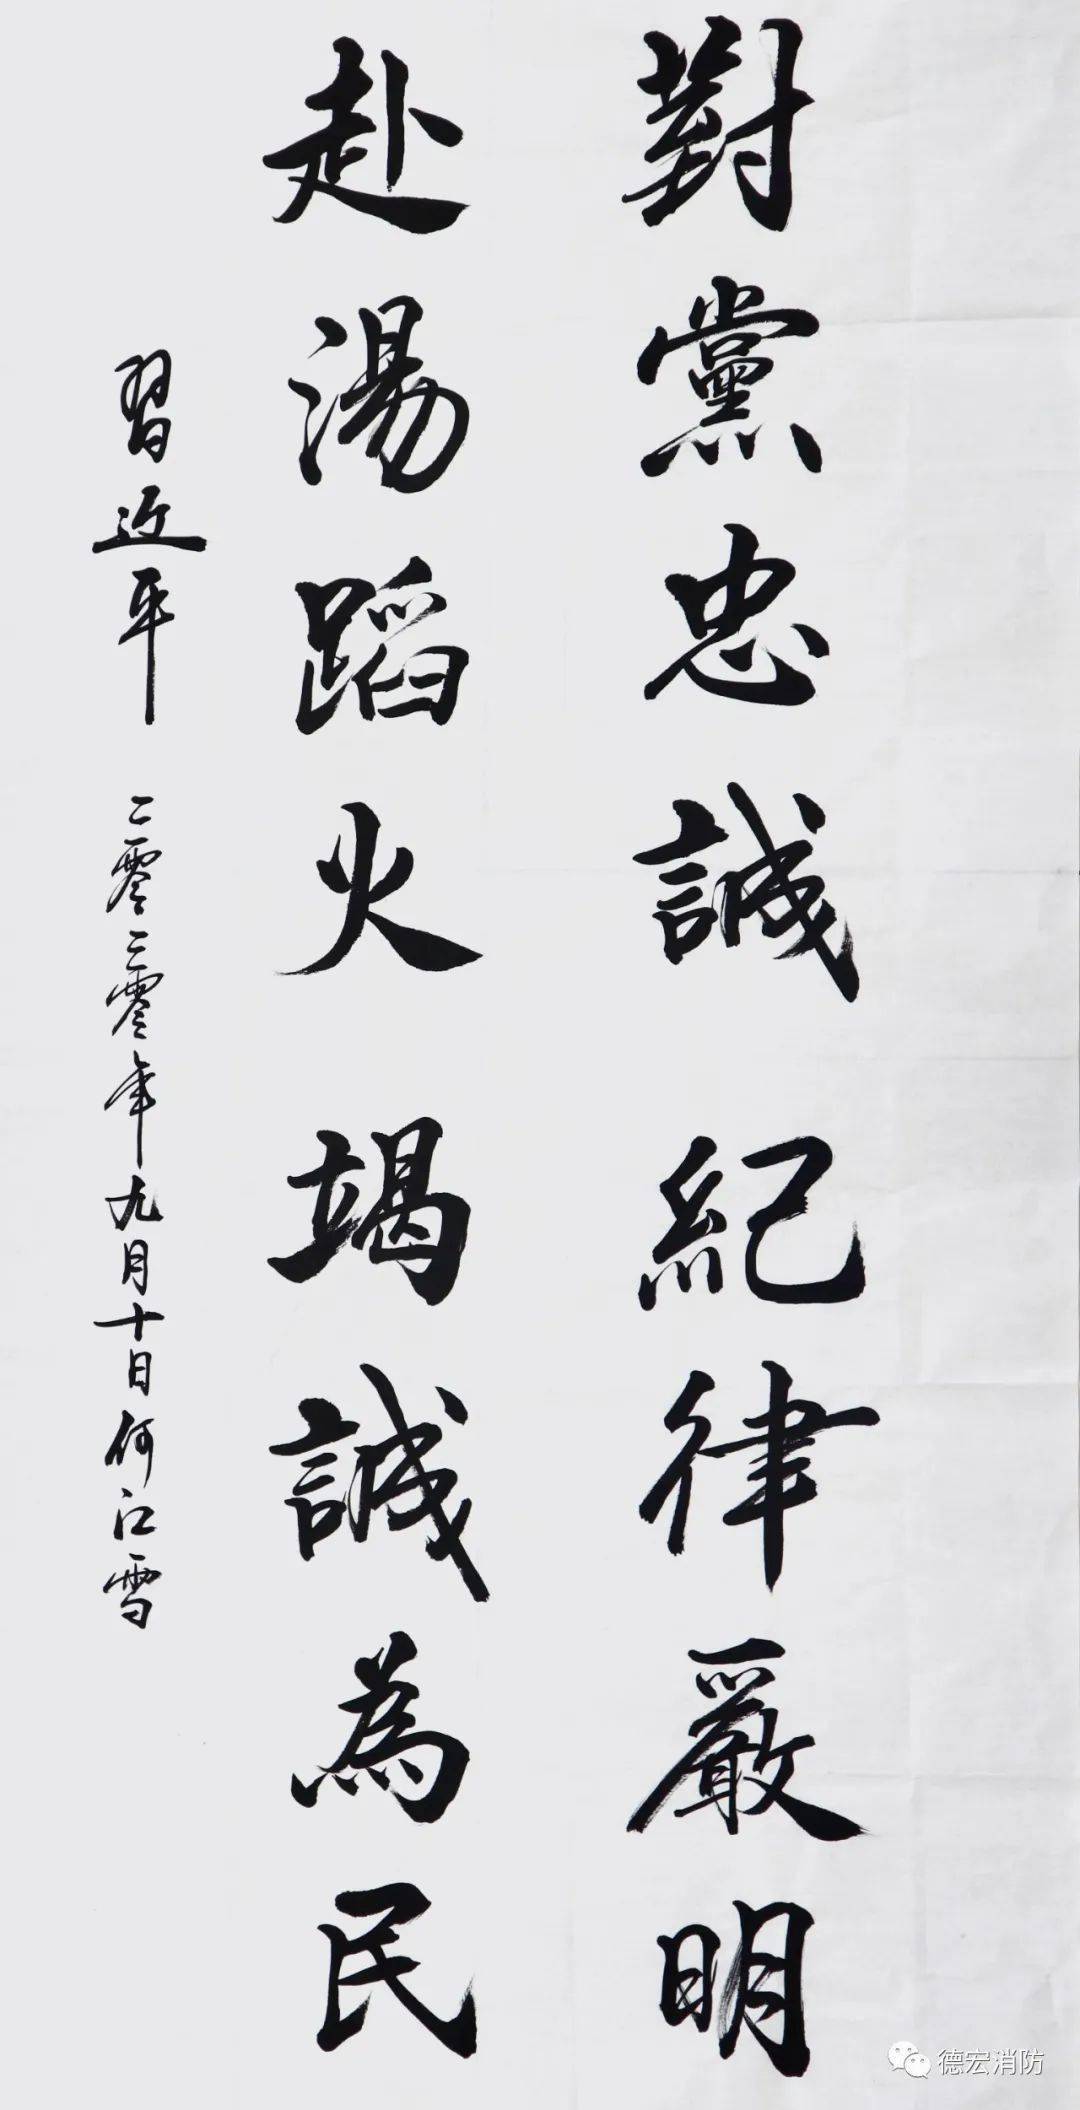 對黨忠誠 紀律嚴明
赴湯蹈火 竭誠為民
習近平 二零二零年九月十日何江雪
德宏消防